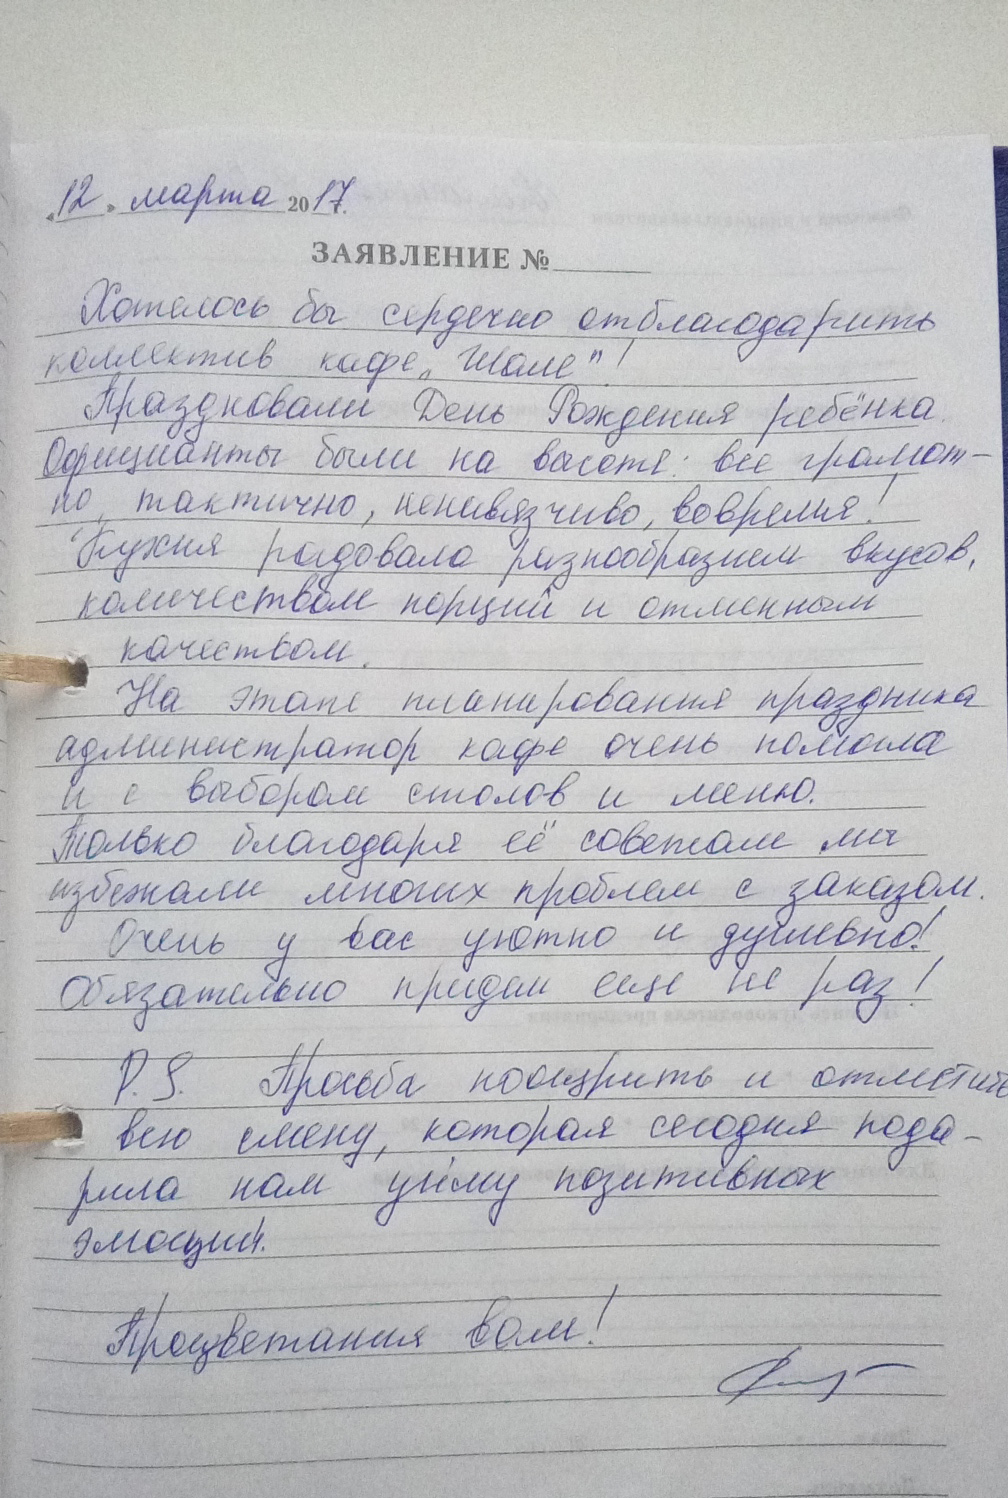 „12" марта 2017 г.
ЗАЯВЛЕНИЕ №
Хотелось бы сердечно отблагодарить
коллектив кафе „Шале"!
Праздновали День Рождения ребёнка.
Официанты были на высоте: все грамот-
но, тактично, ненавязчиво, вовремя!
Кухня радовала разнообразием вкусов,
количеством порций и отменным
качеством.
На этапе планирования праздника
администратор кафе очень помогла
и с выбором столов и меню.
Только благодаря её советам мы
избежали многих проблем с заказом.
Очень у вас уютно и душевно!
Обязательно придем еще не раз!
P.S. Просьба поощрить и отметить
всю смену, которая сегодня пода-
рила нам уйму позитивных
эмоций.
Процветания вам!